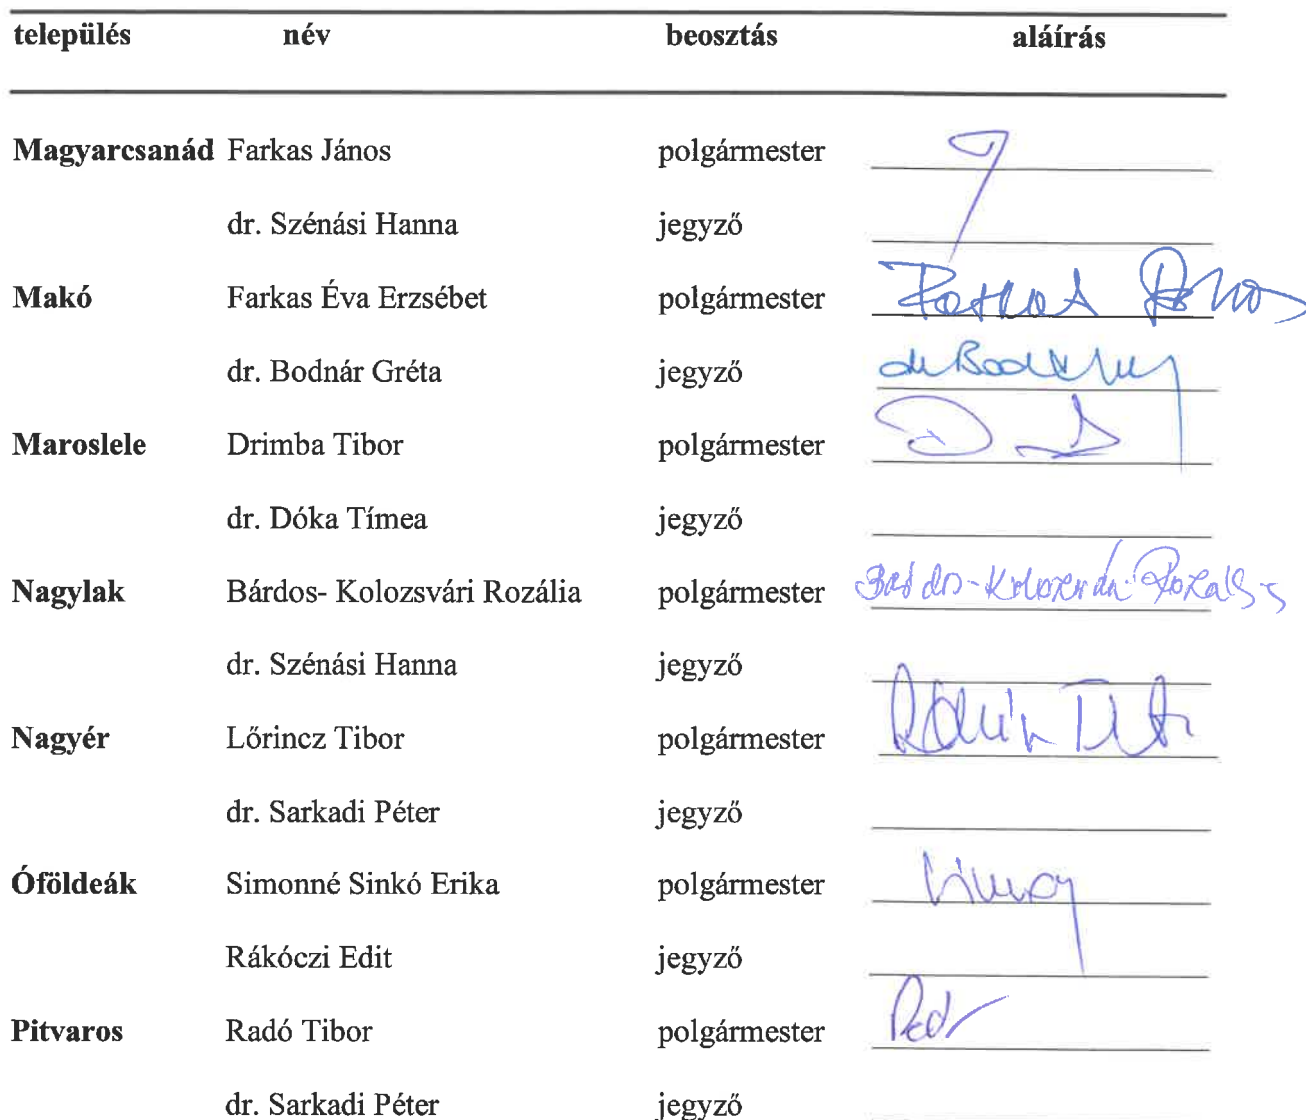 település név beosztás aláírás
Magyarcsanád Farkas János polgármester
dr. Szénási Hanna jegyző
Makó Farkas Éva Erzsébet polgármester
dr. Bodnár Gréta jegyző
Maroslele Drimba Tibor polgármester
dr. Dóka Tímea jegyző
Nagylak Bárdos- Kolozsvári Rozália polgármester Bárdos-Kolozsvári Rozália
dr. Szénási Hanna jegyző
Nagyér Lőrincz Tibor polgármester
dr. Sarkadi Péter jegyző
Óföldeák Simonné Sinkó Erika polgármester
Rákóczi Edit jegyző
Pitvaros Radó Tibor polgármester
dr. Sarkadi Péter jegyző